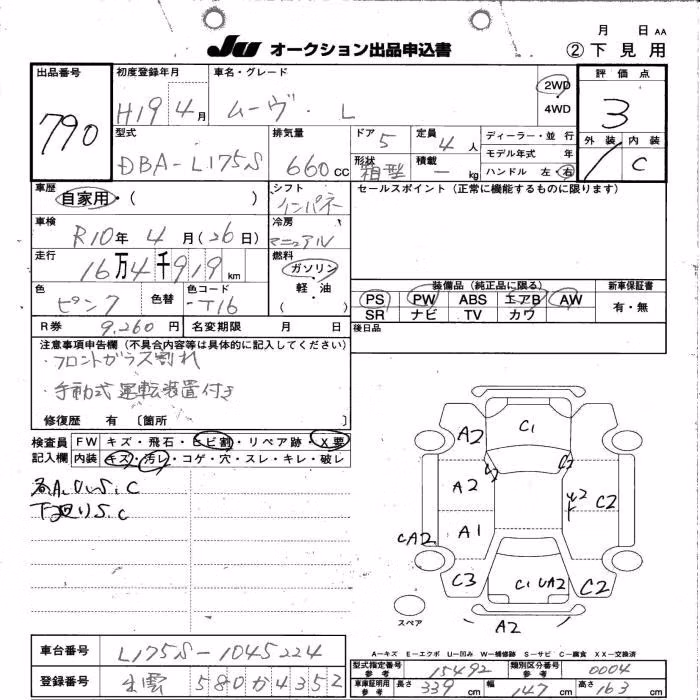 月 日 AA
JU オークション出品申込書 ②下見用
出品番号 790
初度登録年月 H19年4月
車名・グレード ムーヴ・L
2WD
4WD
評価点 3
外装 内装 C
型式 DBA-L175S
排気量 660cc
ドア 5
定員 4人
形状 箱型
積載 ― kg
ディーラー・並行
モデル年式 年
ハンドル 左・右
車歴 自家用・( )
シフト インパネ
セールスポイント(正常に機能するものに限ります)
車検 R10年4月(26日)
冷房 マニュアル
走行 16万4千919km
燃料 ガソリン
軽・油
( )
色 ピンク
色替
色コード T16
装備品(純正品に限る) 新車保証書
PS PW ABS エアB AW 有・無
SR ナビ TV カワ
R券 9,260円 名変期限 月 日
後日品
注意事項申告欄(不具合内容等は具体的に記入してください)
・フロントガラス割れ
・手動式運転装置付き
修復歴 有〔箇所 〕
検査員 FW キズ・飛石・ヒビ割・リペア跡・X要
記入欄 内装 キズ・汚レ・コゲ・穴・スレ・キレ・破レ
各A.U.S.C
下廻りS.C
C1
A2
A2
C2
A1
CA2
C3
C1 UA2
C2
A2
スペア
A-キズ E-エクボ U-凹み W-補修跡 S-サビ C-腐食 XX-交換済
車台番号 L175S-1045224
登録番号 出雲 580 か 4352
型式指定番号 参考 15492
類別区分番号 参考 0004
車庫証明用 参考 長さ 339cm 幅 147cm 高さ 163cm